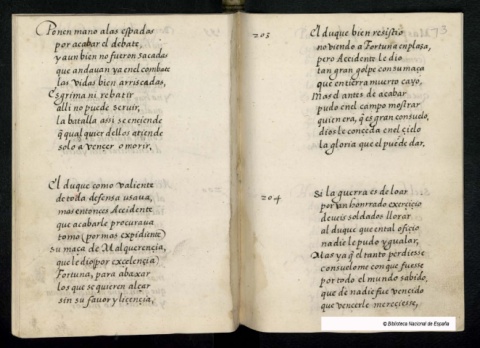 Ponen mano a las espadas
por acabar el debate,
y aun bien no fueron sacadas
que andauan ya en el combate
las vidas bien arriscadas,
Esgrima ni rebatir
alli no puede seruir,
la batalla assi se enciende
q̃ qualquier dellos atiende
solo a vençer o morir.
El duque como valiente
de toda defensa usaua,
mas entonces Accidente
que acabarle procuraua
tomo (por mas expidiente)
su maça de Malquerençia,
que le dio (por excelençia)
Fortuna, para abaxar
los que se quieren alçar
sin su fauor y liçençia,
203
73
El duque bien resistio
no viendo a Fortuna
pero Accidente le dio
tan gran golpe con su maça
que en tierra muerto cayo,
mas el antes de acabar
pudo en el campo mostrar
quien era, q̃ es gran consuelo,
dios le conceda en el çielo
la gloria que el puede dar.
204
Si la guerra es de loar
por un honrrado exerçiçio
deueis soldados llorar
al duque que en tal ofiçio
nadie le pudo ygualar,
Mas ya q̃ el tanto perdiesse
consuelome con que fuesse
por todo el mundo sabido,
que de nadie fue vençido
que vencerle mereçiesse,
© Biblioteca Nacional de España